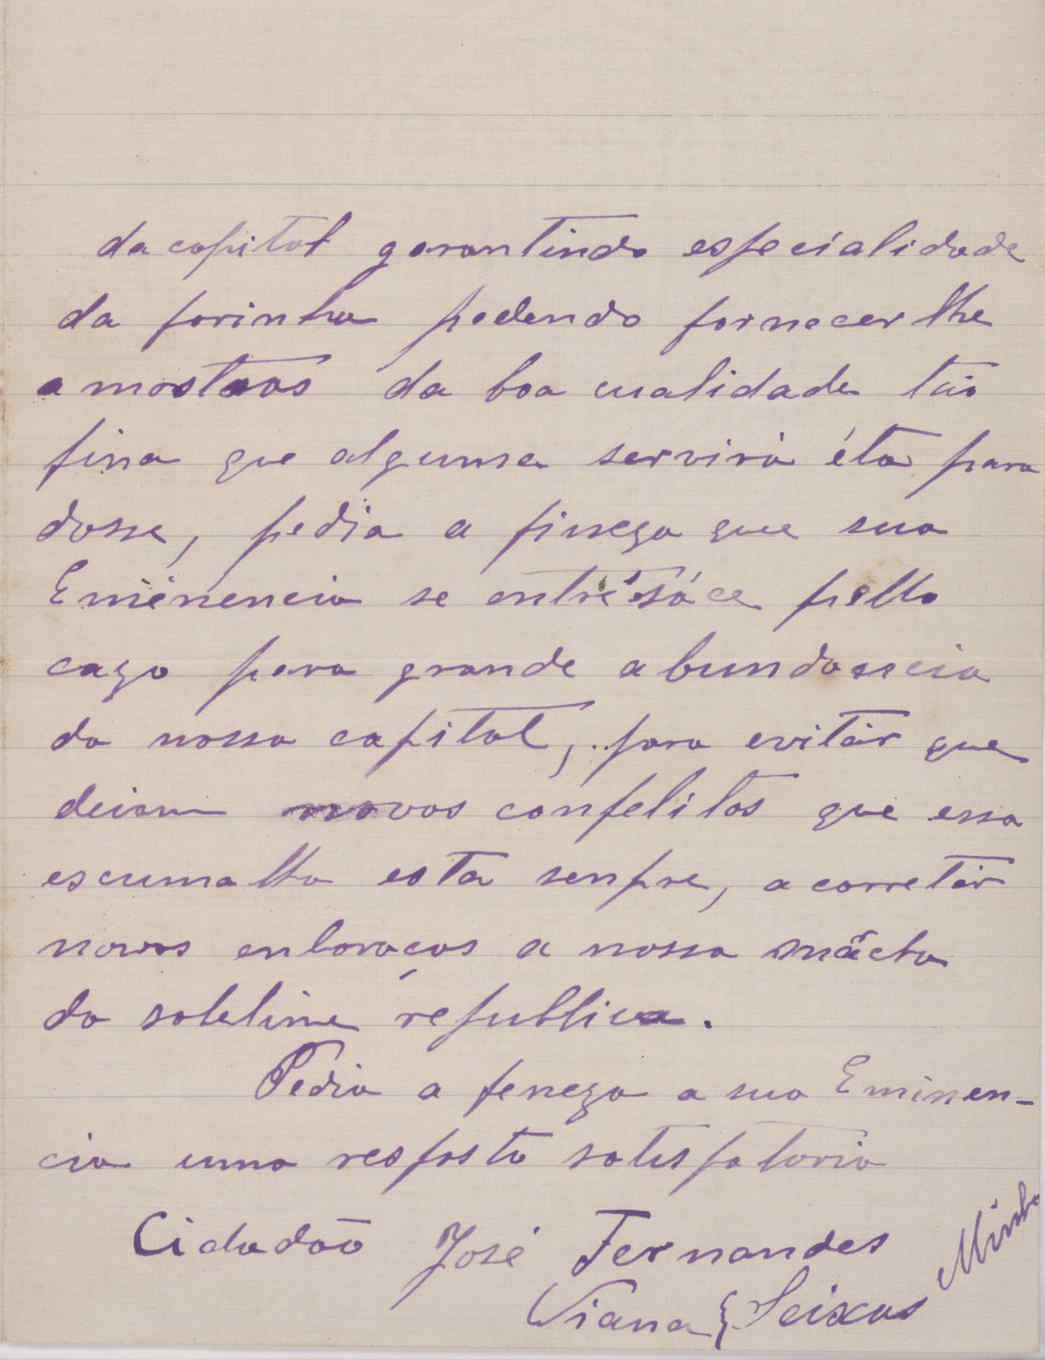 da capital garantindo especialidade
da farinha podendo fornecer lhe
amostras da boa cualidade tão
fina que alguma servirá éta para
dosse, pedia a fineza que sua
Eminencia se entresáce pello
cazo para grande abundancia
da nossa capital, para evitár que
deiam novos confelitos que essa
escumalha esta senpre, a corretár
novos enbaraços a nossa
da sobelime républica.
Pedia a feneza a sua Eminen-
cia uma resposta satisfatoria
Cidadão José Fernandes
Viana Seixas Minho